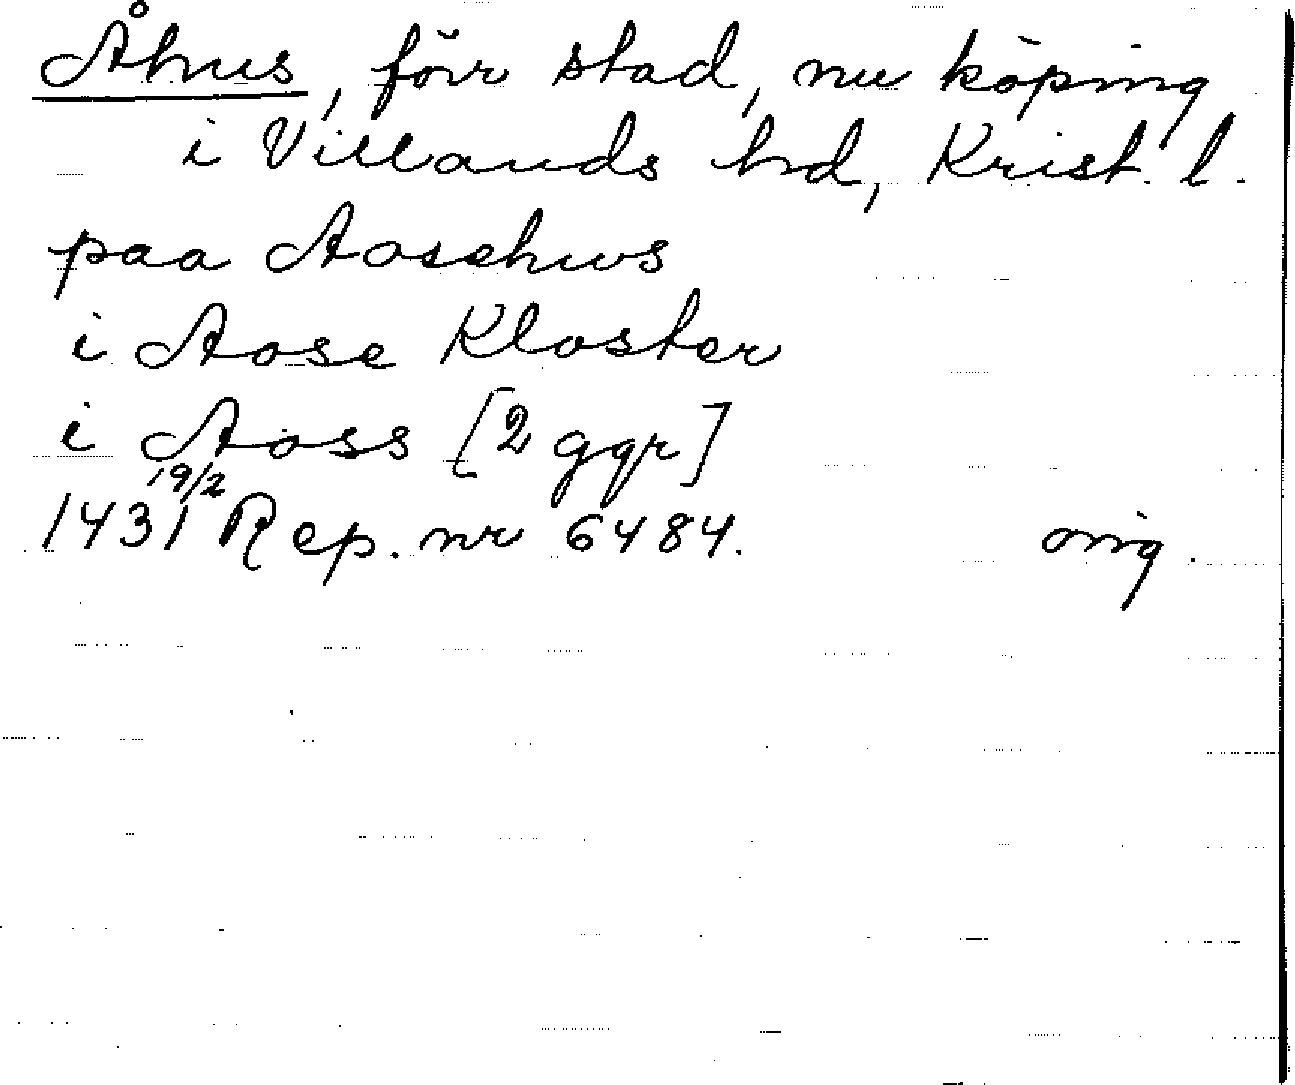 Åhus, förr stad, nu köping
i Villands hd, Krist. l.
paa Aosehws
i Aose Kloster
i Aoss [2 ggr]
1431 19/2 Rep. nr 6484. orig.